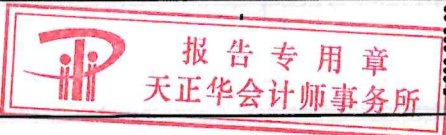 报告专用章
天正华会计师事务所